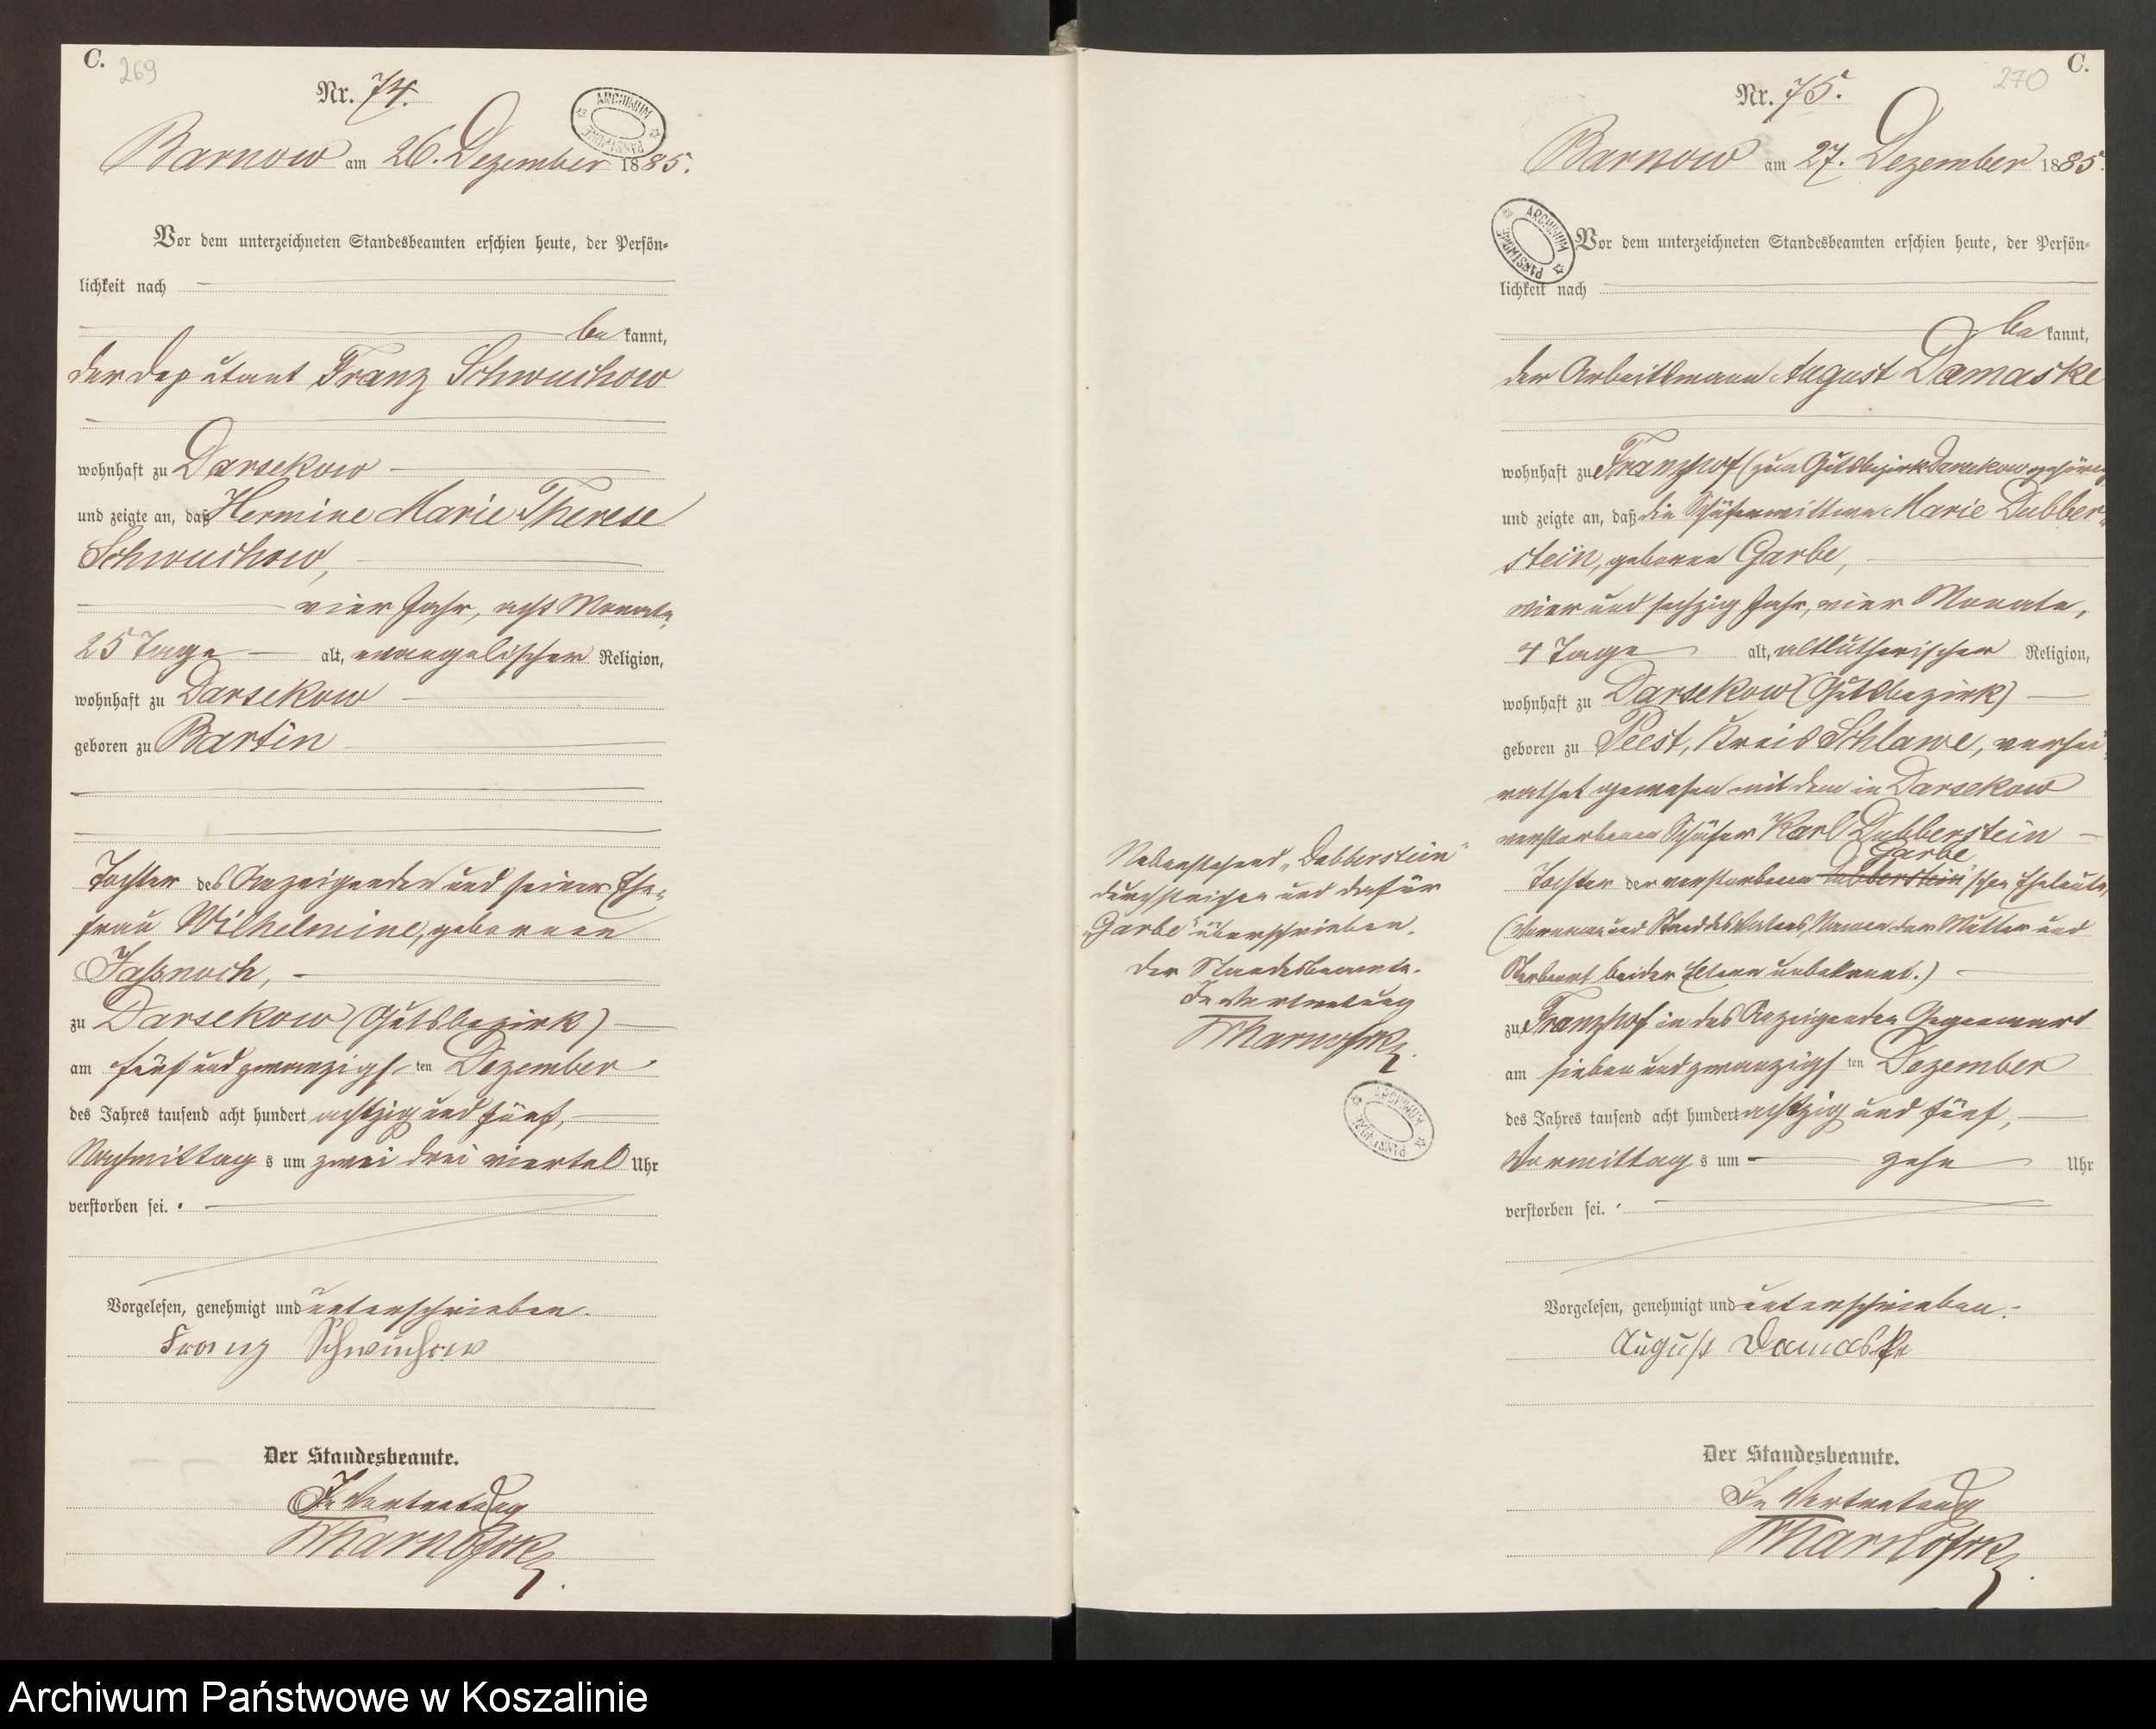 C. 269
Nr. 74.
ARCHIWUM PAŃSTWOWE
Barnow am 26. Dezember 1885.
Vor dem unterzeichneten Standesbeamten erschien heute, der Persön-
lichkeit nach
be kannt,
der Deputant Franz Schwuchow
wohnhaft zu Darsekow
und zeigte an, daß Hermine Marie Therese
Schwuchow,
vier Jahr, acht Monate,
25 Tage alt, evangelischer Religion,
wohnhaft zu Darsekow
geboren zu Bartin
Tochter des Anzeigenden und seiner Ehe-
frau Wilhelmine, geborenen
Jaßnoch,
zu Darsekow (Gutsbezirk)
am fünf und zwanzigsten Dezember
des Jahres tausend acht hundert achtzig und fünf,
Nachmittags um zwei drei viertel Uhr
verstorben sei.
Vorgelesen, genehmigt und unterschrieben.
Franz Schwuchow
Der Standesbeamte.
In Vertretung
270 C.
Nr. 75.
Barnow am 27. Dezember 1885.
ARCHIWUM PAŃSTWOWE
Vor dem unterzeichneten Standesbeamten erschien heute, der Persön-
lichkeit nach
be kannt,
der Arbeitsmann August Damaske
wohnhaft zu Franzhof (zum Gutsbezirk Darsekow gehörig
und zeigte an, daß die Schäferwittwe Marie Dubber-
stein, geborene Garbe,
vier und sechzig Jahr, vier Monate,
4 Tage alt, altlutherischer Religion,
wohnhaft zu Darsekow (Gutsbezirk)
geboren zu Peest, Kreis Schlawe, verhei-
rathet gewesen mit dem in Darsekow
verstorbenen Schäfer Karl Dubberstein
Garbe
Tochter der verstorbenen Dubberstein'schen Eheleute,
(Vorname und Stand des Vaters, Namen der Mutter und
Sterbeort beider Eltern unbekannt.)
zu Franzhof in des Anzeigenden Gegenwart
am sieben und zwanzigsten Dezember
des Jahres tausend acht hundert achtzig und fünf,
Vormittags um zehn Uhr
verstorben sei.
Vorgelesen, genehmigt und unterschrieben.
August Damaske
Der Standesbeamte.
In Vertretung
Nebenstehend „Dubberstein"
durchstrichen und dafür
„Garbe" überschrieben.
Der Standesbeamte.
In Vertretung
ARCHIWUM PAŃSTWOWE
Archiwum Państwowe w Koszalinie